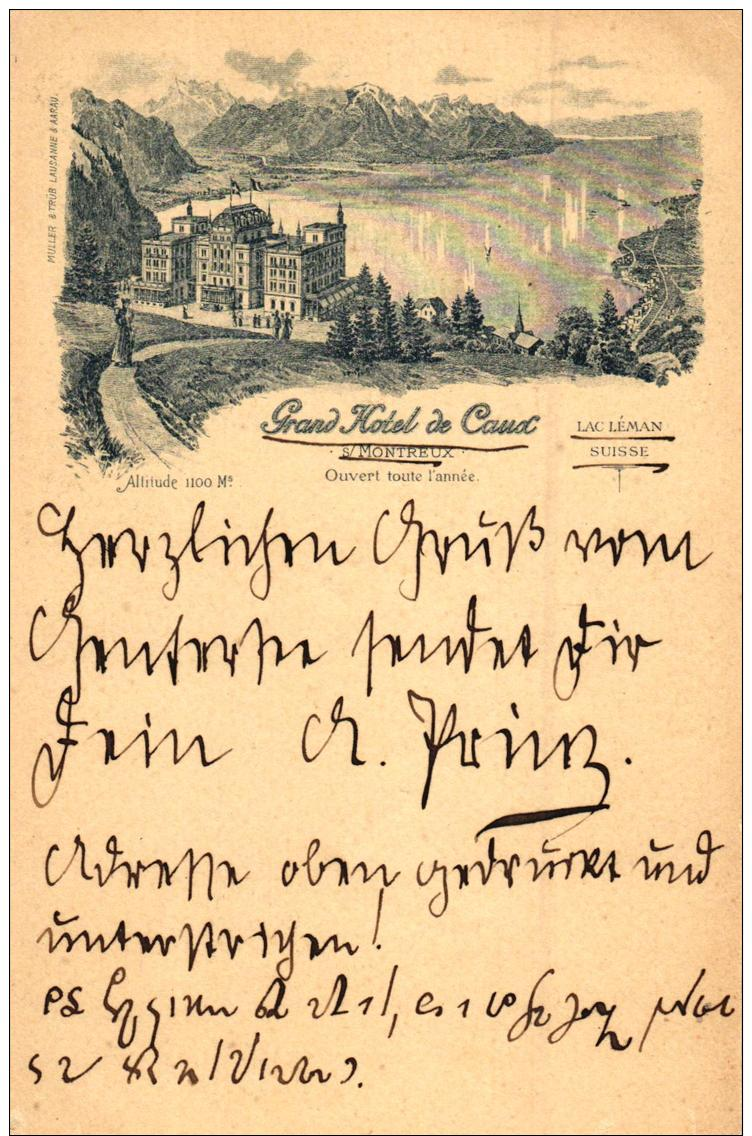 MÜLLER & TRÜB LAUSANNE & AARAU.
Grand Hotel de Caux
LAC LÉMAN
· s/ MONTREUX ·
SUISSE
Altitude 1100 Ms
Ouvert toute l'année.
Herzlichen Gruß vom
Genfersee sendet Dir
Dein A. Prinz.
Adresse oben gedruckt und
unterstrichen!
PS